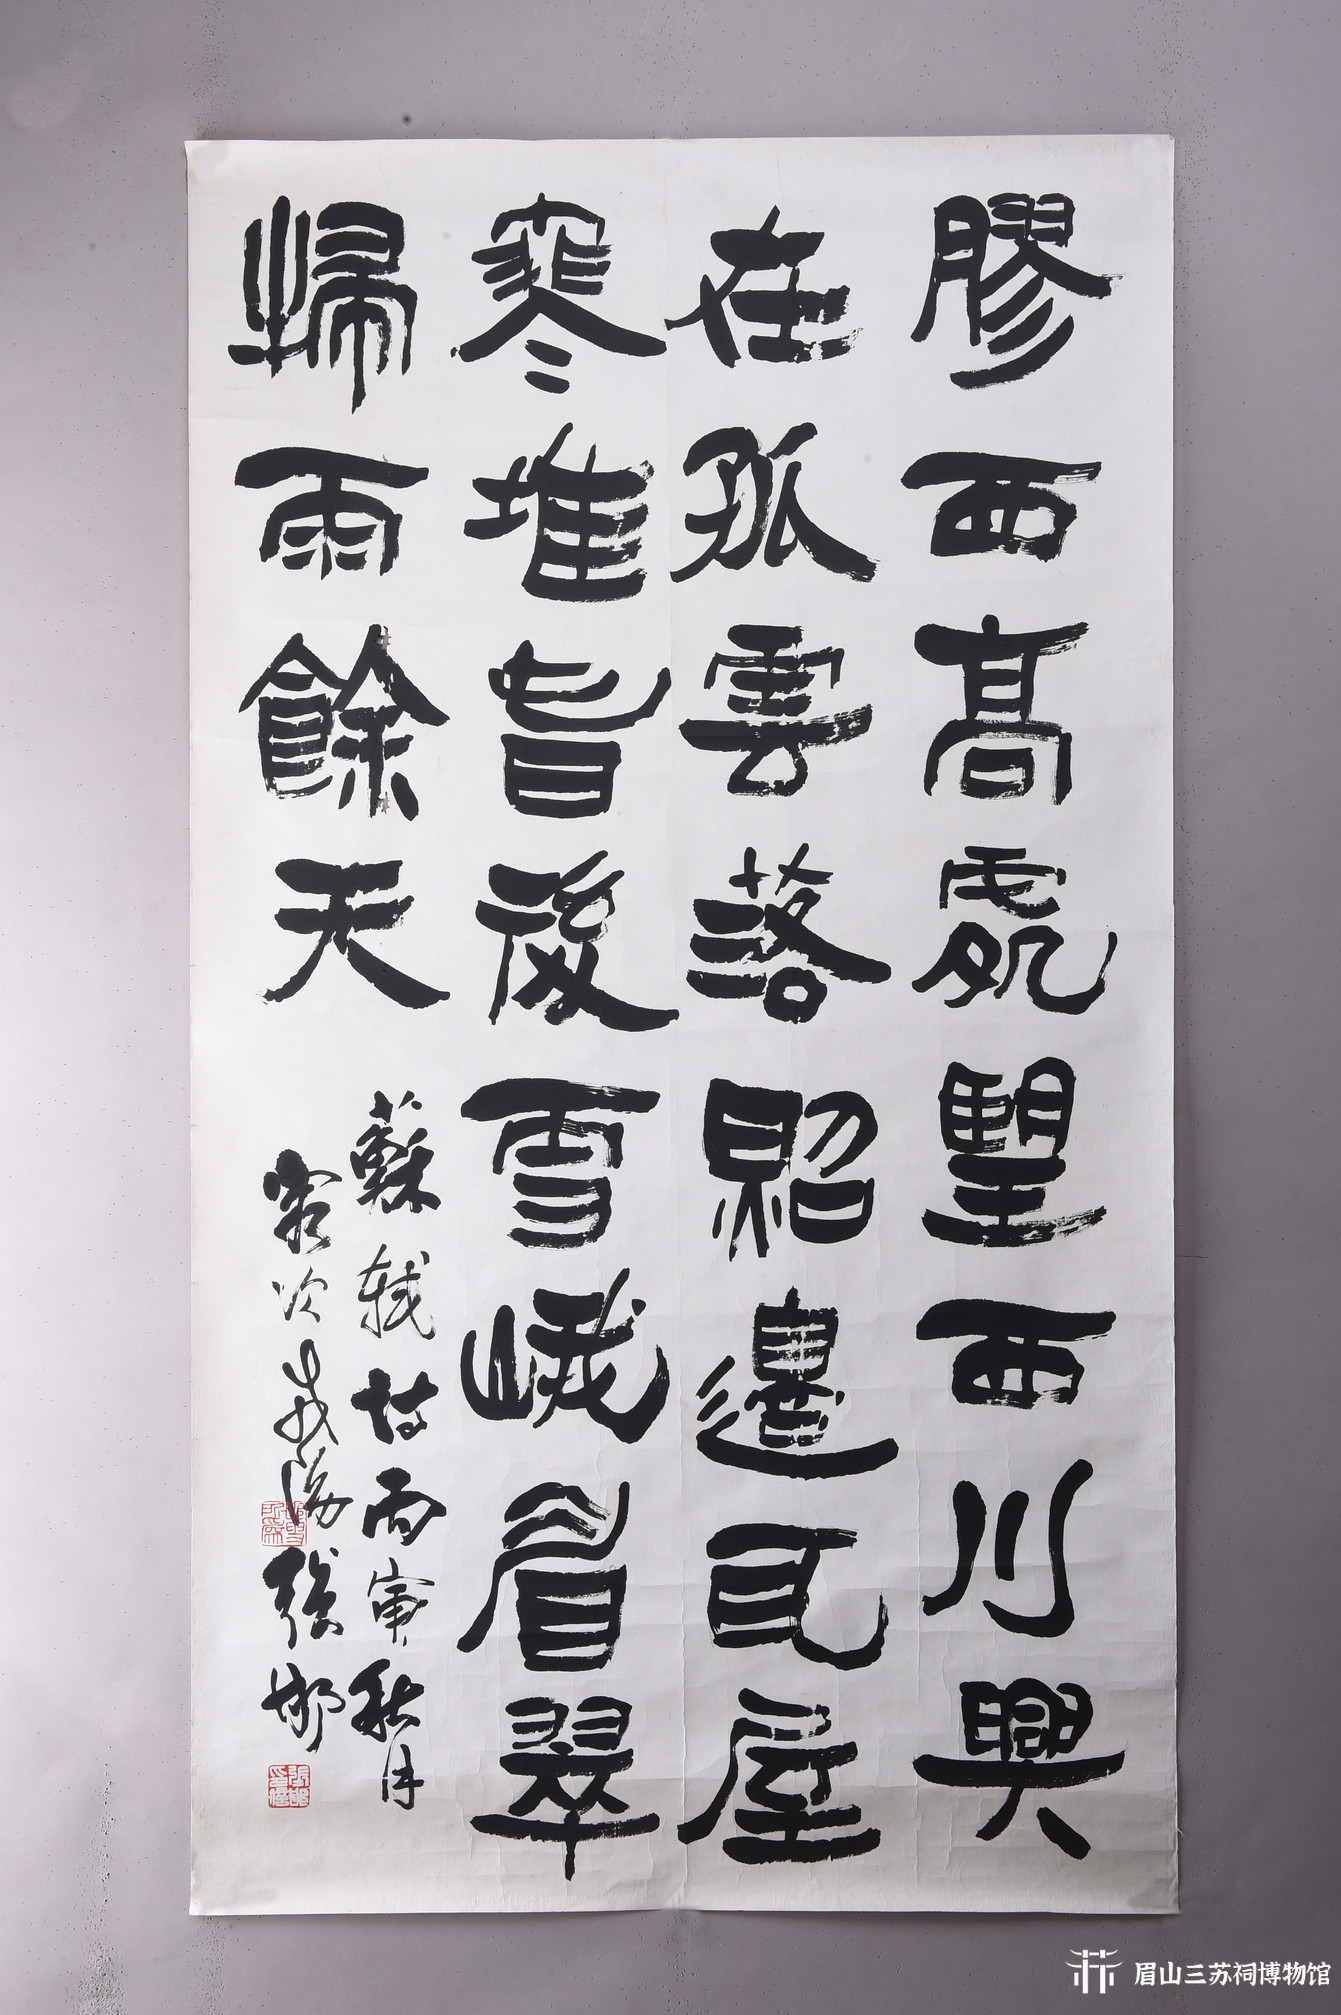 膠西高處望西川興
在孤雲落照邊瓦屋
寒堆旾後雪峨眉翠
掃雨餘天
蘇軾詩丙寅秋月
客次
張
眉山三苏祠博物馆